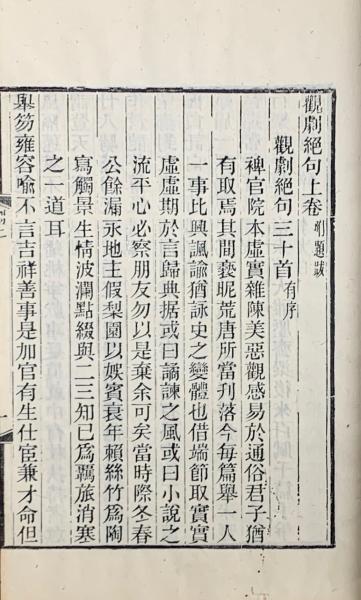 觀劇絕句上卷 附題跋
觀劇絕句三十首 有序
稗官院本虛實雜陳美惡觀感易於通俗君子猶
有取焉其間褻昵荒唐所當刋落今每篇舉一人
一事比興諷諭猶詠史之變體也借端節取實實
虛虛期於言歸典據或曰譎諫之風或曰小說之
流平心必察朋友勿以是棄余可矣當時際冬春
公餘漏永地主假梨園以娛賓衰年賴絲竹為陶
寫觸景生情波瀾點綴與二三知已爲羈旅消寒
之一道耳
舉笏雍容喻不言吉祥善事是加官有生仕宦兼才命但